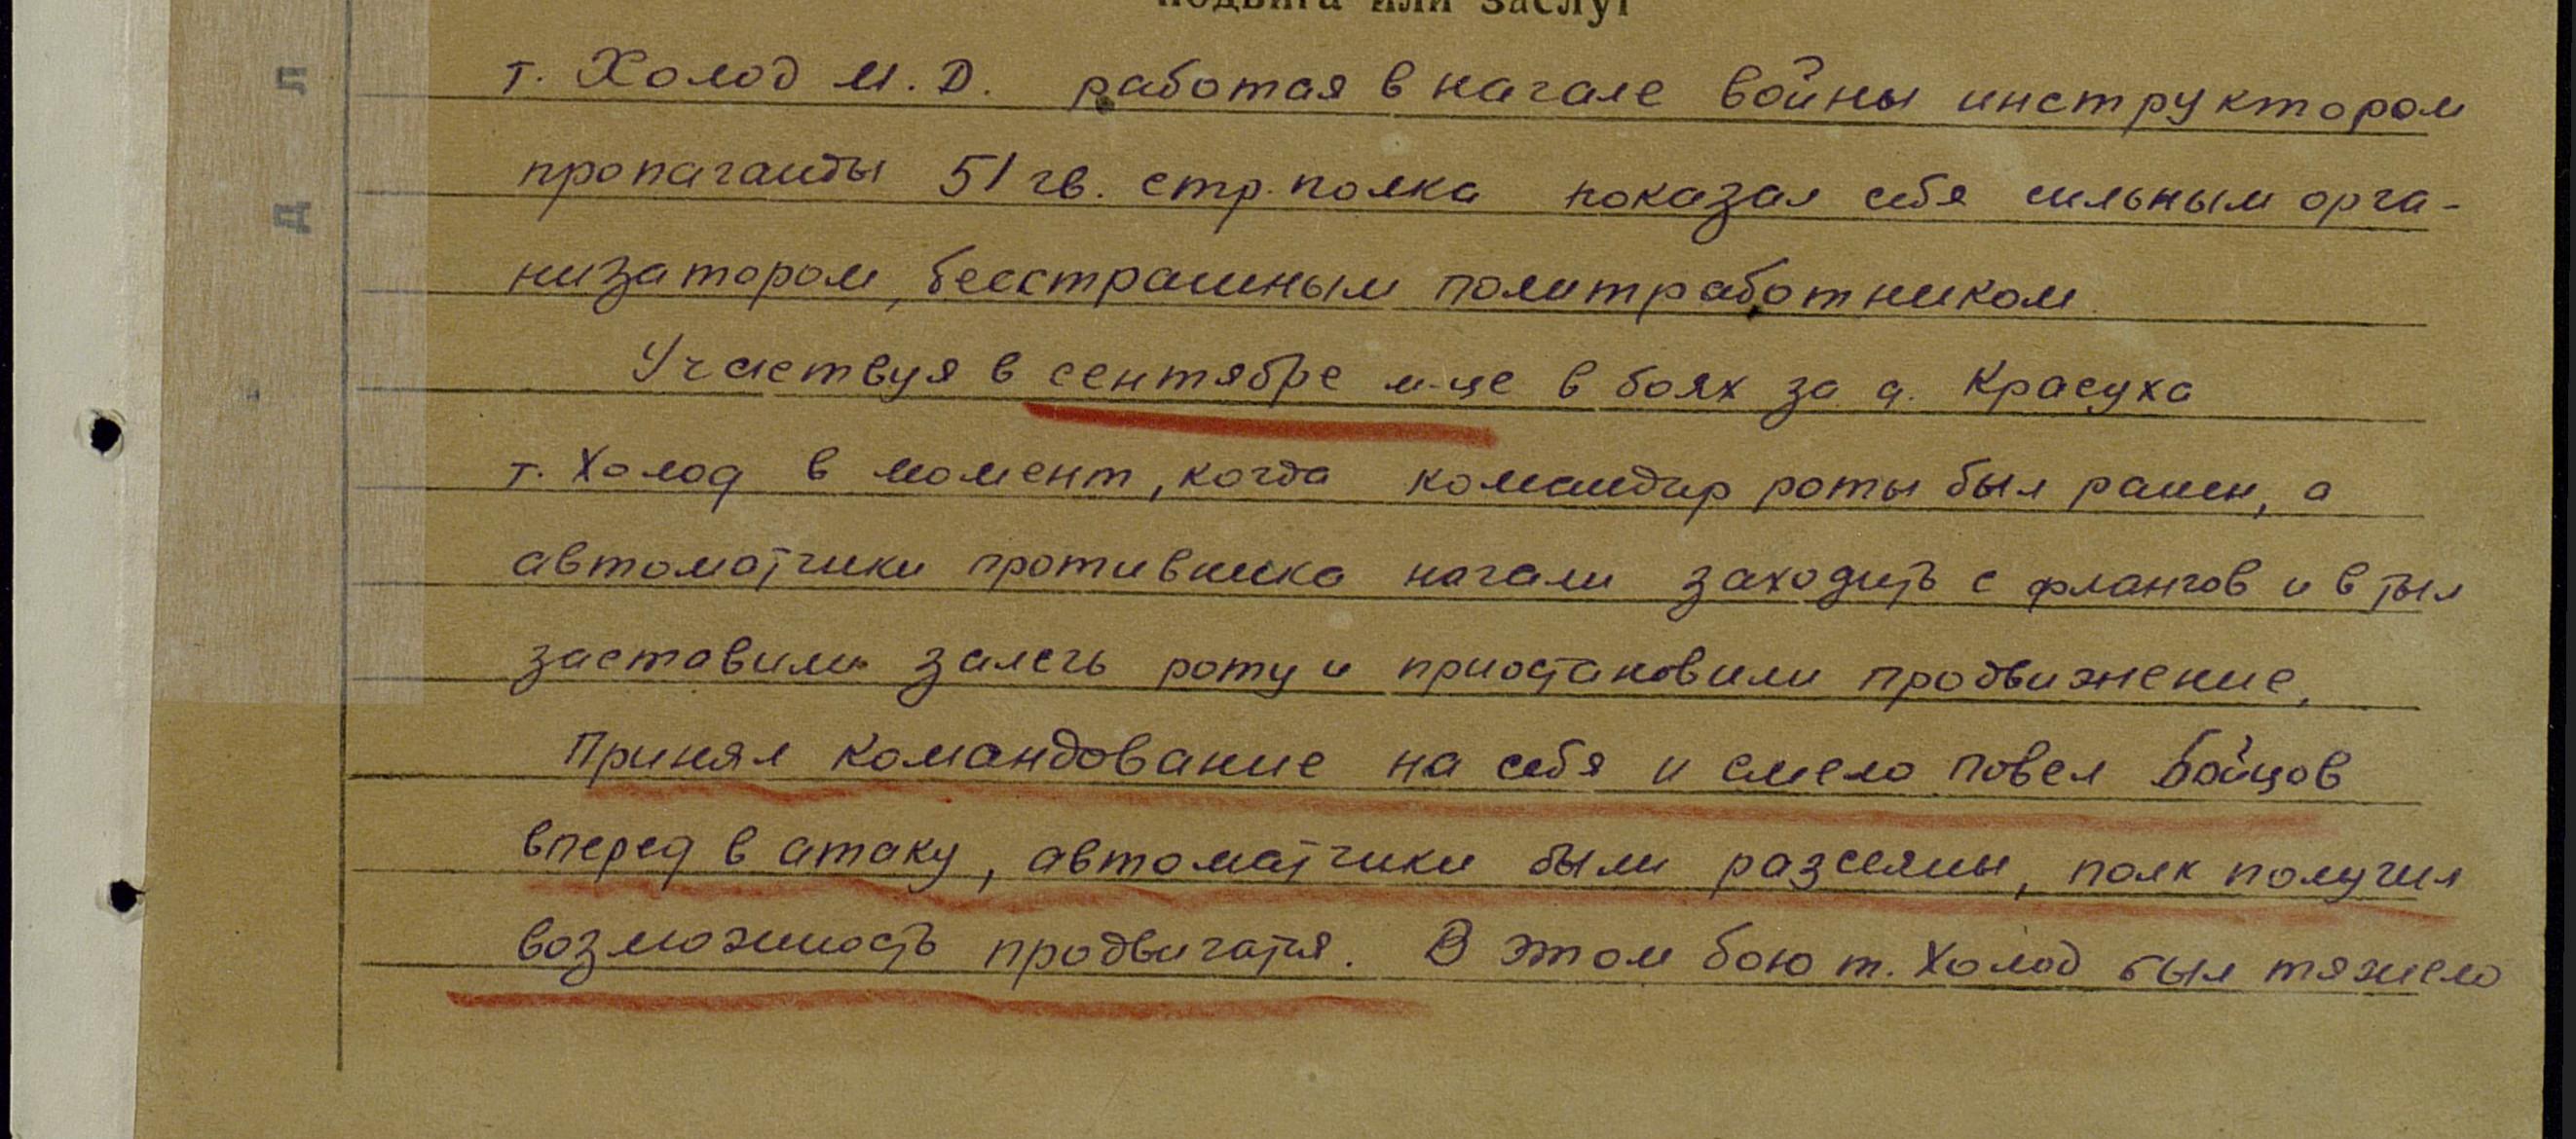 подвига или заслуг
т. Холод М. Д. работая в начале войны инструктором
пропаганды 51 гв. стр. полка показал себя сильным орга-
низатором, бесстрашным политработником
Участвуя в сентябре м-це в боях за д. Красуха
т. Холод в момент, когда командир роты был ранен, а
автоматчики противника начали заходить с флангов и в тыл
заставили залечь роту и приостановили продвижение,
Принял командование на себя и смело повел бойцов
вперед в атаку, автоматчики были разсеяны, полк получил
возможность продвигатся. В этом бою т. Холод был тяжело
Д Л